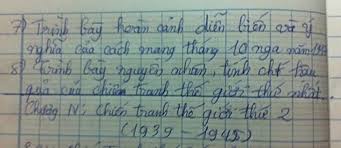 7) Trình bày hoàn cảnh diễn biến và ý
nghĩa của cách mạng tháng 10 nga năm
8) Trình bày nguyên nhân, tính chất hậu
quả của chiến tranh thế giới thứ nhất.
Chương IV: Chiến tranh thế giới thứ 2
(1939 - 1945)